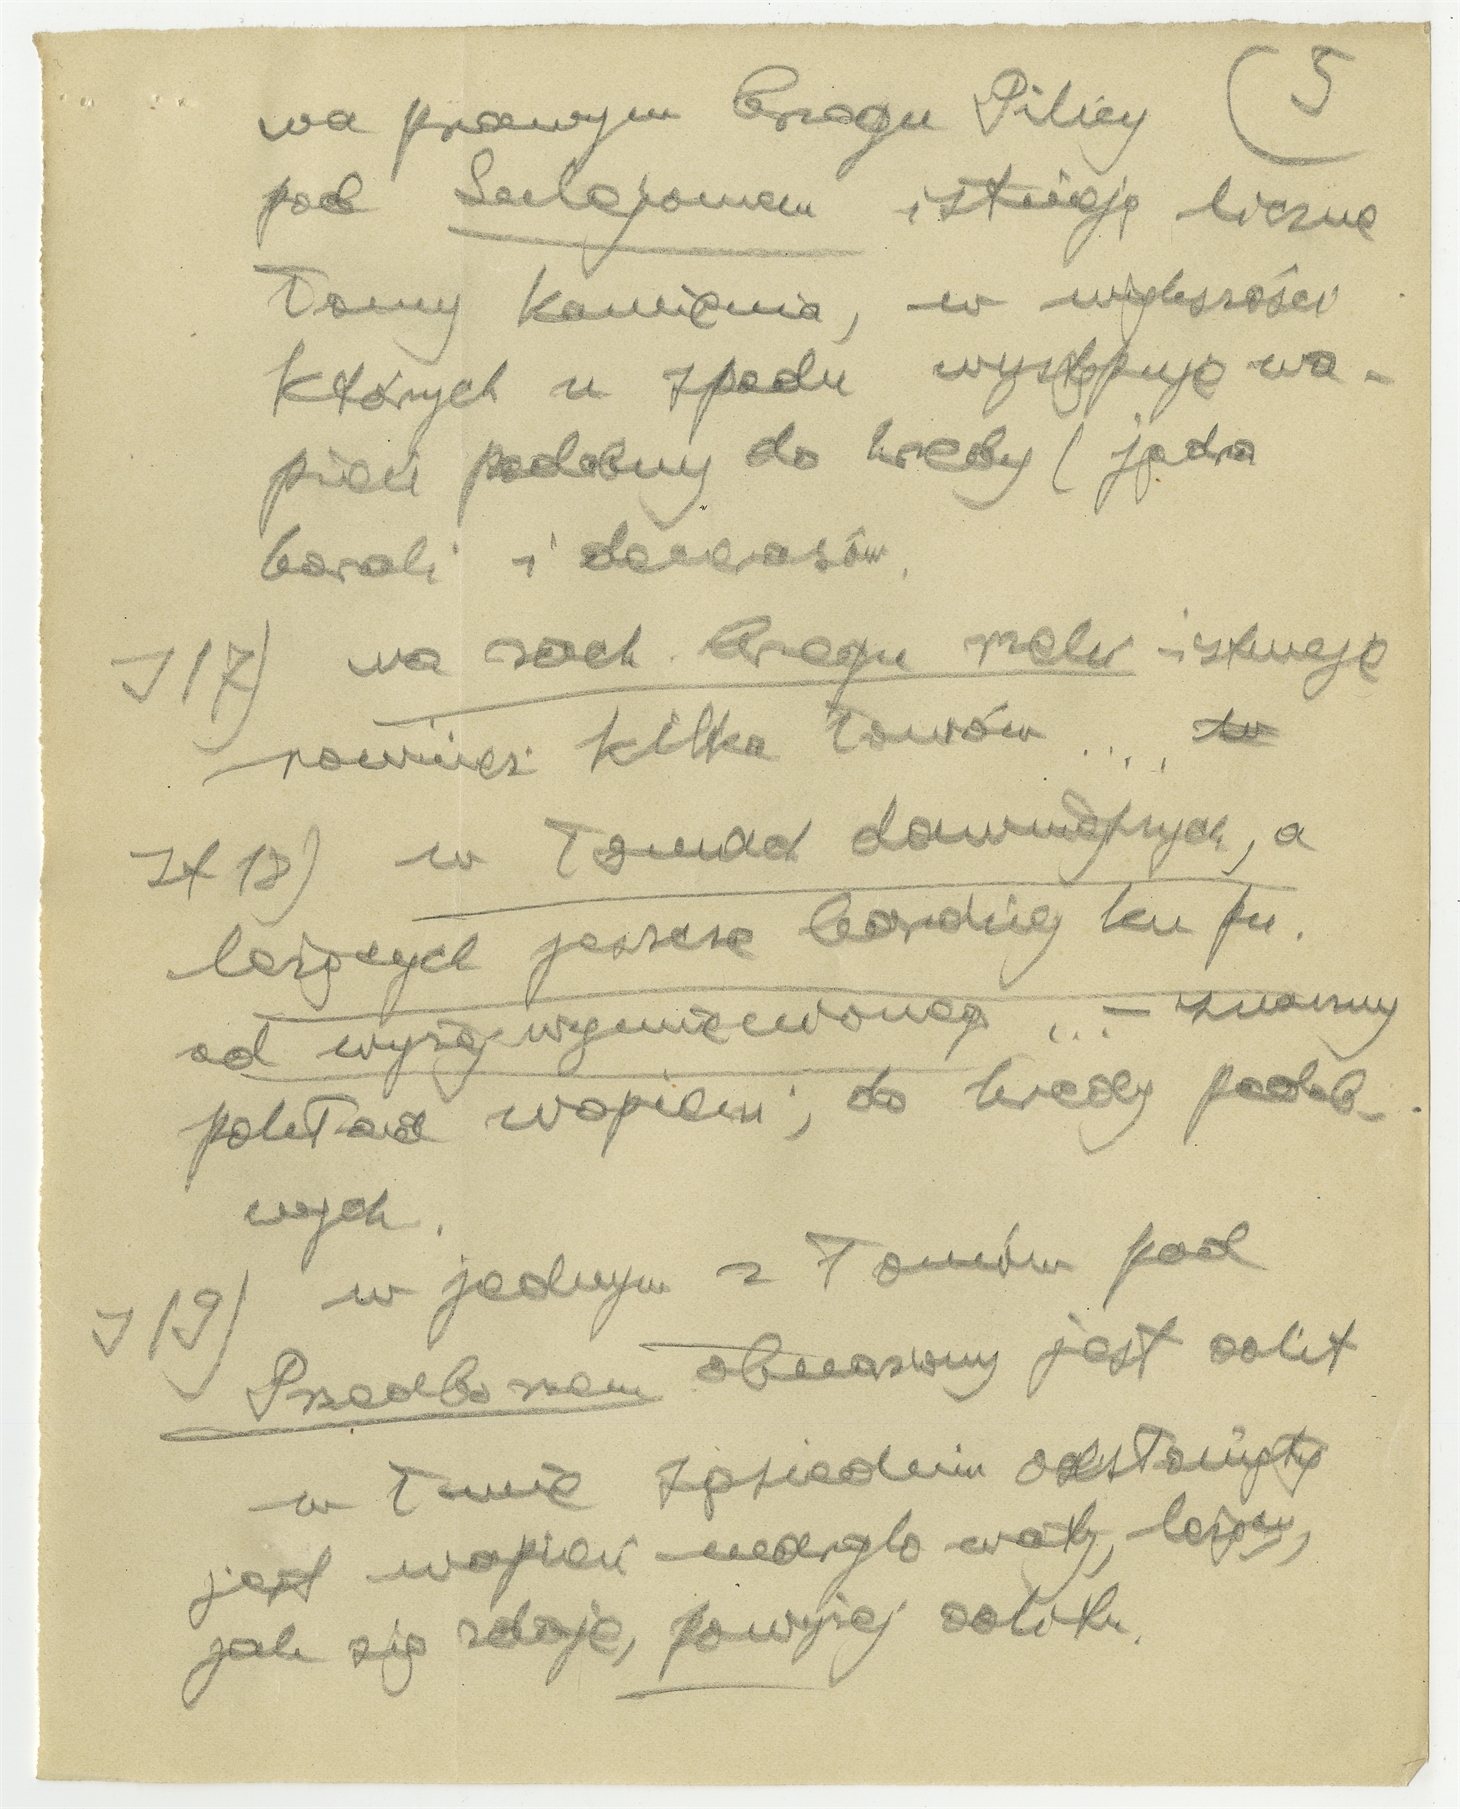 na prawym brzegu Pilicy (5
pod Sulejowem istnieją liczne
łomy kamienia, w większości
których u spodu występuje wa-
pień podobny do kredy (jądra
korali i
J 17) na zach. brzegu rzeki istnieje
również kilka łomów ...
18) w łomach dawniejszych, a
leżących jeszcze bardziej ku pn.
od wyżej wymienionego ... – znamy
pokład wapieni, do kredy podob-
nych.
J 19) w jednym z łomów pod
Przedborzem obnażony jest oolit
w łomie sąsiednim odsłonięty
jest wapień marglowaty, leżący,
jak się zdaje, powyżej oolitu.